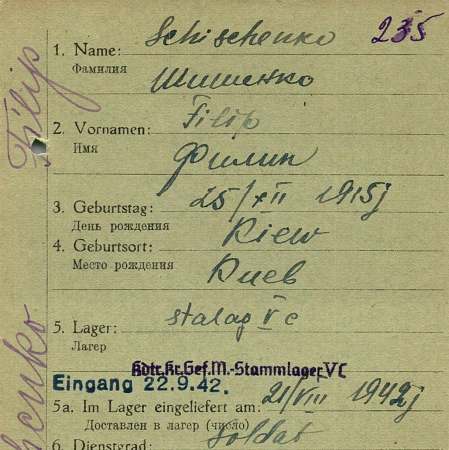 Schischenko 235
1. Name:
Фамилия
Шишенко
Filip
2. Vornamen:
Имя
Филип
3. Geburtstag: 25/XII 1915j
День рождения
Kiew
4. Geburtsort:
Место рождения
Киев
5. Lager: stalag V c
Лагер
Kdtr.Kr.Gef.M.-Stammlager VC
Eingang 22.9.42.
5a. Im Lager eingeliefert am: 21/VIII 1942j
Доставлен в лагер (число)
6. Dienstgrad: Soldat
Filip
chenko